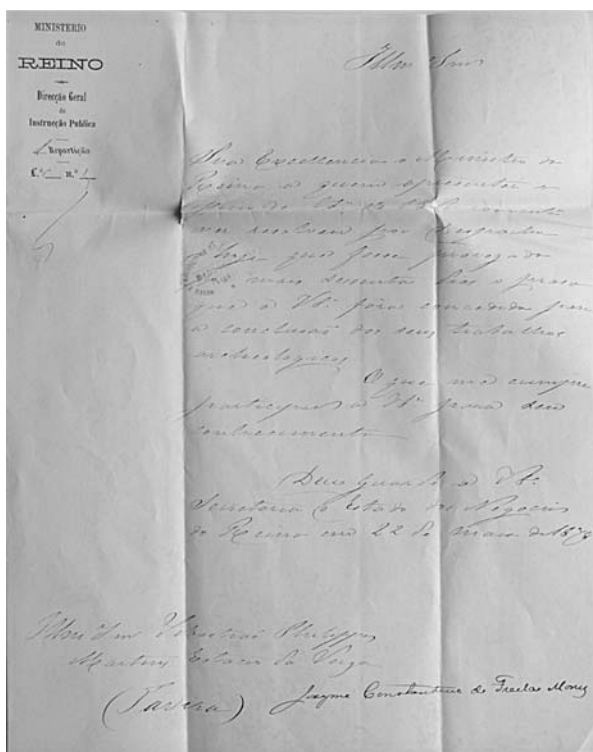 MINISTERIO
do
REINO
Direcção Geral
de
Instrucção Publica
Repartição
L.º n.º
Illmo Snr
Sua Excellencia o Ministro do
Reino a quem apresentei o
officio de Vª de
resolveu por despacho
de hoje que fosse prorogado
por mais sessenta dias o praso
que a Vª fôra concedido para
a conclusão dos seus trabalhos
archeologicos.
O que me cumpre
participar a Vª para seu
conhecimento
Deus Guarde a Vª.
Secretaria d'Estado dos Negocios
do Reino em 22 de de 187
Illmo Snr Sebastião Philippes
Martins Estacio da Veiga
(Tavira)
Jayme Constantino de Freitas Moniz